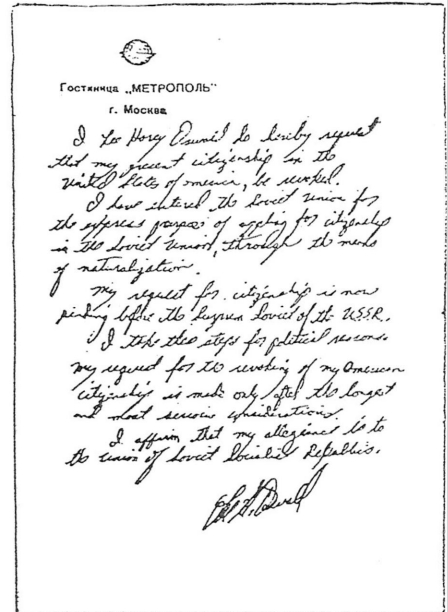 Гостиница „МЕТРОПОЛЬ"
г. Москва
I Lee Harey Oswald do hereby request
that my present citizenship in the
United States of america, be revoked.
I have entered the Soviet Union for
the express purpose of appling for citizenship
in the Soviet Union, through the means
of naturalization.
My request for citizenship is now
pending before the Suprem Soviet of the U.S.S.R.
I take these steps for political reasons.
My request for the revoking of my American
citizenship is made only after the longest
and most serious considerations.
I affirm that my allegiance is to
the union of Soviet Socialist Republics.